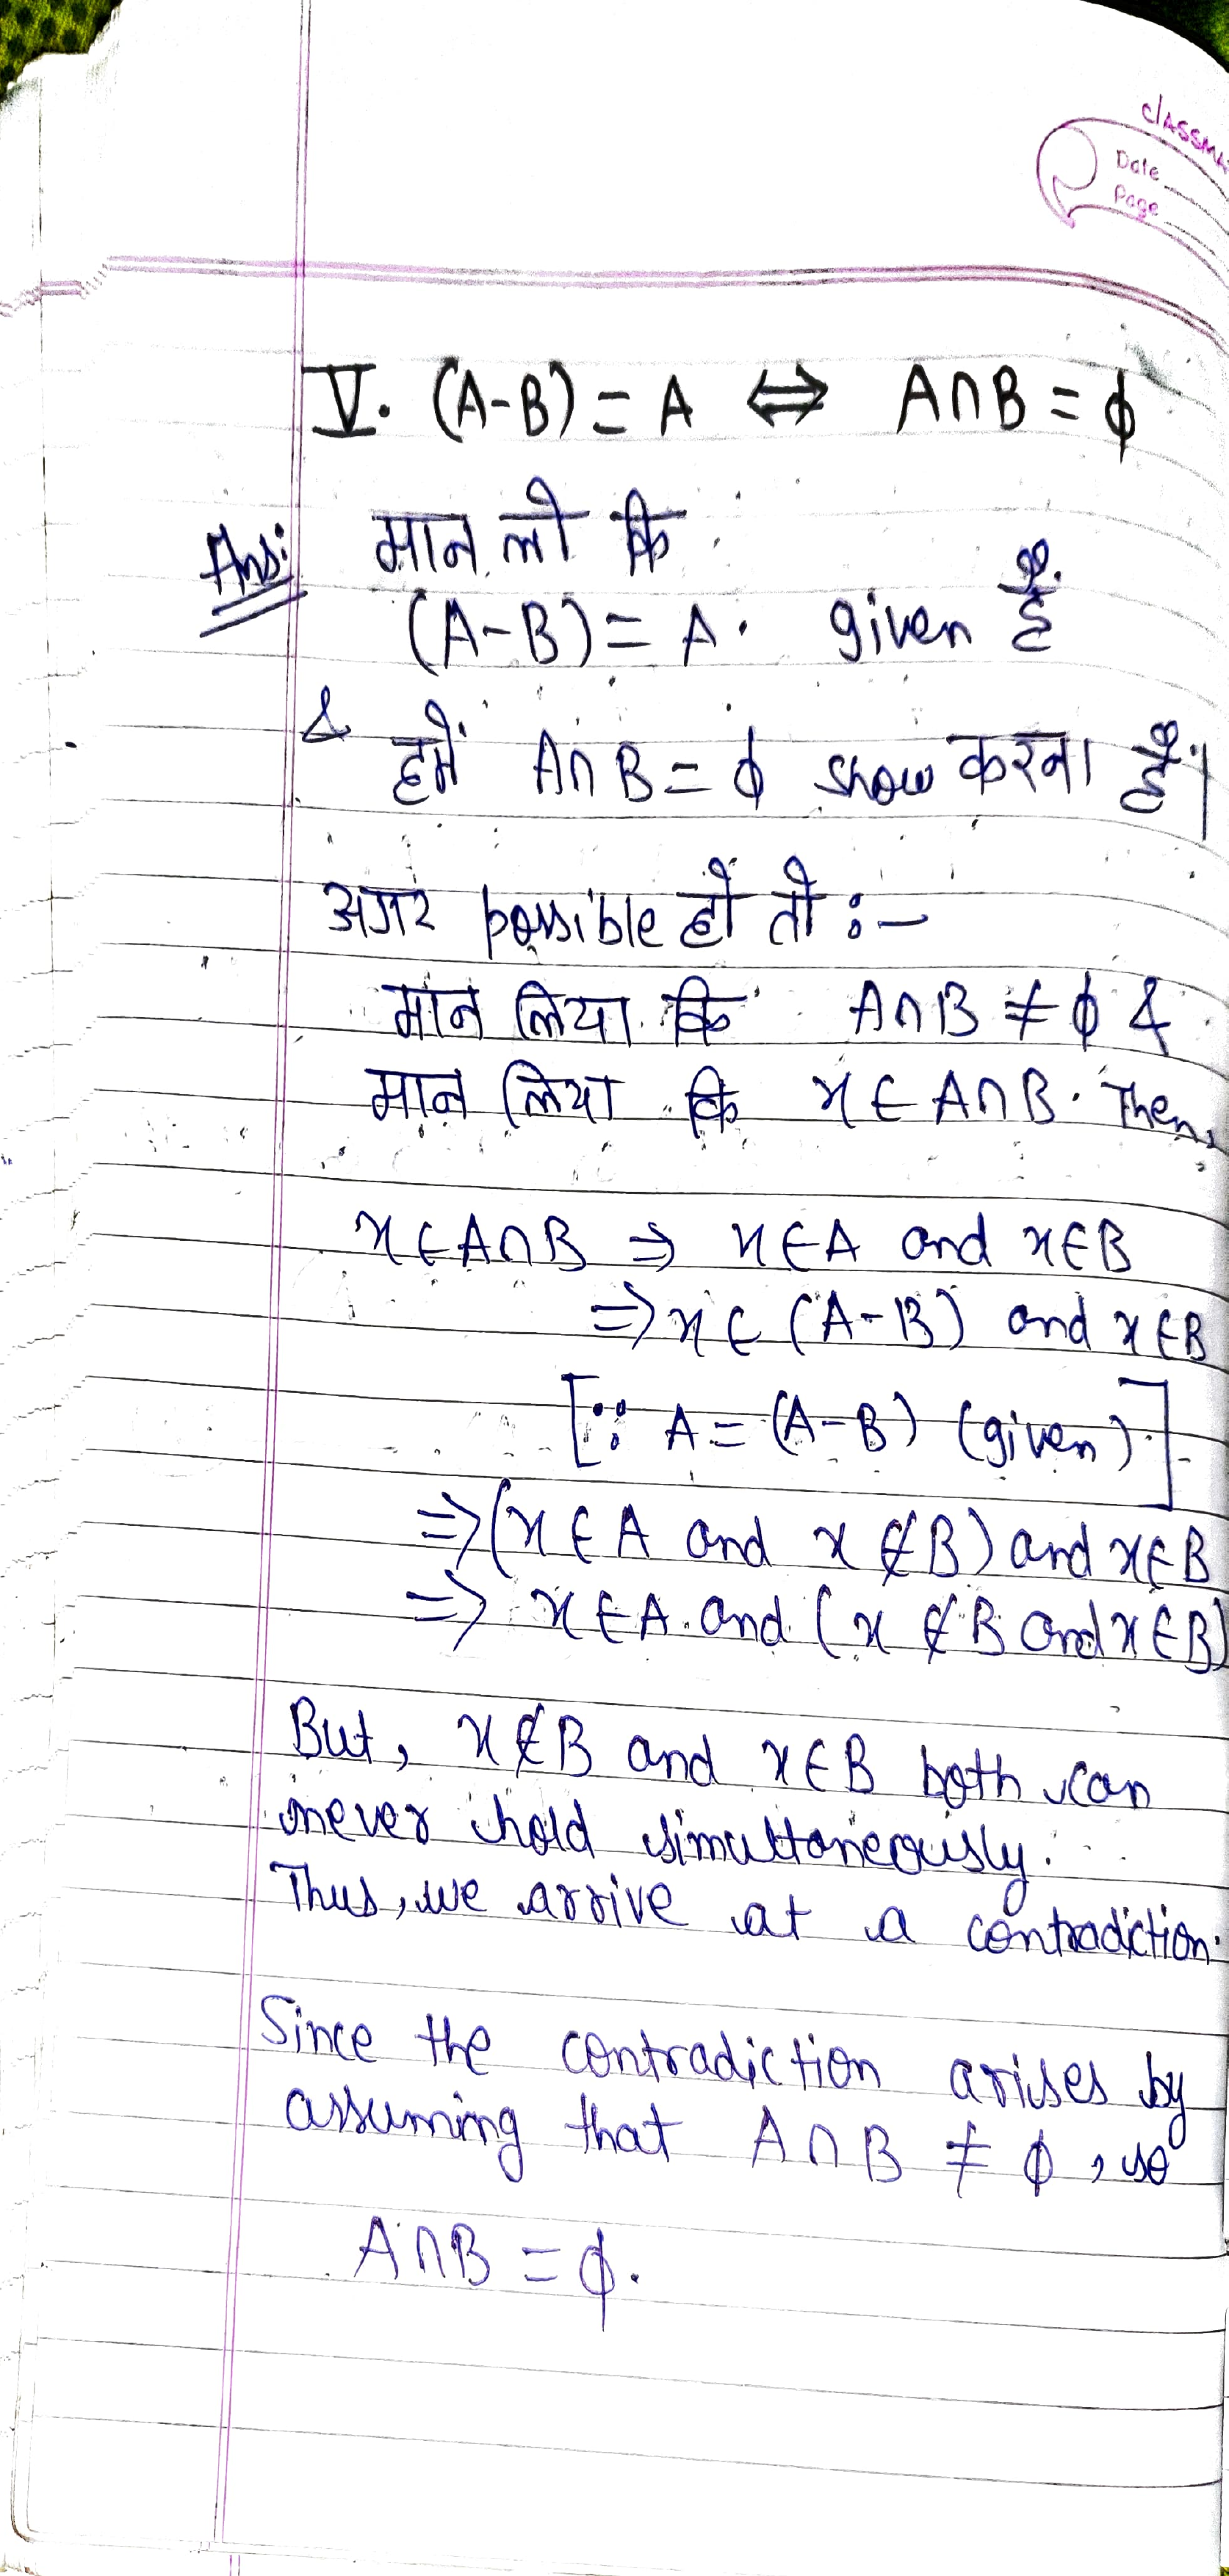 classm
Date
Page
V. (A-B) = A ⇔ A∩B = ϕ
Ans: मान लो कि
(A-B) = A. given है.
& हमें A∩B = ϕ show करना है।
अगर possible हो तो :-
मान लिया कि A∩B ≠ ϕ &
मान लिया कि x ∈ A∩B. Then,
x ∈ A∩B ⇒ x ∈ A and x ∈ B
⇒ x ∈ (A-B) and x ∈ B
[∵ A = (A-B) (given).]
⇒ (x ∈ A and x ∉ B) and x ∈ B
⇒ x ∈ A and (x ∉ B and x ∈ B)
But, x ∉ B and x ∈ B both can
never hold simultaneously.
Thus, we arrive at a contradiction.
Since the contradiction arises by
assuming that A∩B ≠ ϕ, so
A∩B = ϕ.